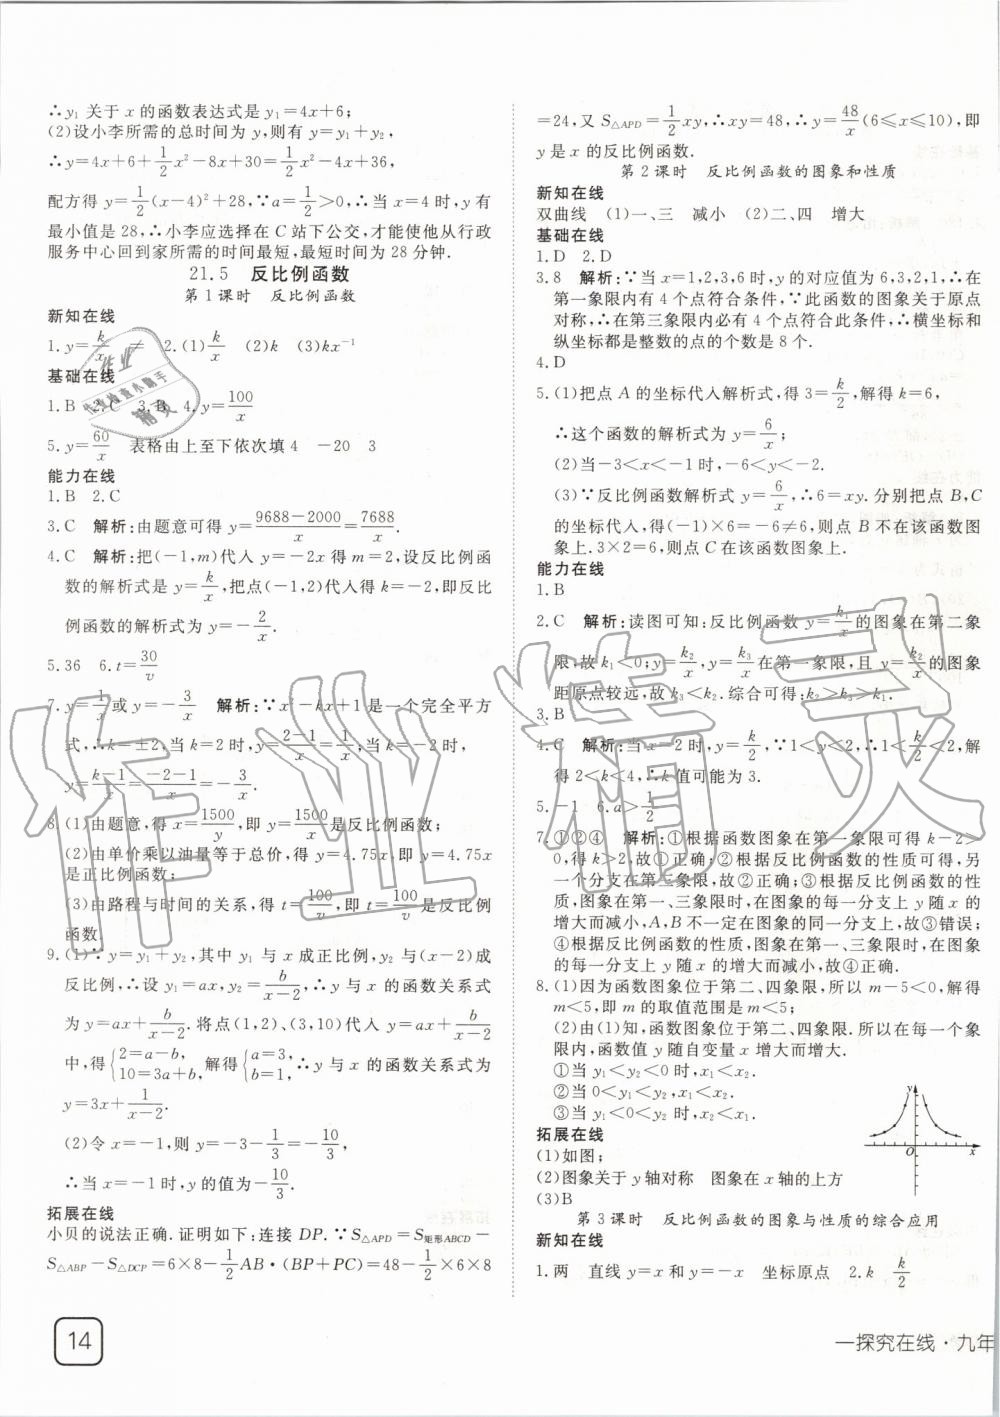 ∴y₁ 关于 x 的函数表达式是 y₁=4x+6;
(2)设小李所需的总时间为 y,则有 y=y₁+y₂,
∴y=4x+6+1/2x²-8x+30=1/2x²-4x+36,
配方得 y=1/2(x-4)²+28,∵a=1/2>0,∴当 x=4时,y 有
最小值是 28,∴小李应选择在 C 站下公交,才能使他从行政
服务中心回到家所需的时间最短,最短时间为 28 分钟.
21.5 反比例函数
第1课时 反比例函数
新知在线
1.y=k/x ≠ 2.(1)k/x (2)k (3)kx⁻¹
基础在线
1.B 2.C 3.B 4.y=100/x
5.y=60/x 表格由上至下依次填 4 -20 3
能力在线
1.B 2.C
3.C 解析:由题意可得 y=(9688-2000)/x=7688/x.
4.C 解析:把(-1,m)代入 y=-2x 得 m=2,设反比例函
数的解析式是 y=k/x,把点(-1,2)代入得 k=-2,即反比
例函数的解析式为 y=-2/x.
5.36 6.t=30/v
7.y=1/x或 y=-3/x 解析:∵x²-kx+1是一个完全平方
式,∴k=±2,当 k=2时,y=(2-1)/x=1/x;当 k=-2时,
y=(k-1)/x=(-2-1)/x=-3/x.
8.(1)由题意,得 x=1500/y,即 y=1500/x是反比例函数;
(2)由单价乘以油量等于总价,得 y=4.75x,即 y=4.75x
是正比例函数;
(3)由路程与时间的关系,得 t=100/v,即 t=100/v是反比例
函数.
9.(1)∵y=y₁+y₂,其中 y₁ 与 x 成正比例,y₂ 与(x-2)成
反比例,∴设 y₁=ax,y₂=b/(x-2),∴y 与 x 的函数关系式
为 y=ax+b/(x-2).将点(1,2)、(3,10)代入 y=ax+b/(x-2)
中,得{2=a-b, 10=3a+b,解得{a=3, b=1,∴y 与 x 的函数关系式为
y=3x+1/(x-2).
(2)令 x=-1,则 y=-3-1/3=-10/3,
∴当 x=-1时,y 的值为-10/3.
拓展在线
小贝的说法正确.证明如下:连接 DP.∵S△APD=S矩形ABCD-
S△ABP-S△DCP=6×8-1/2AB·(BP+PC)=48-1/2×6×8
14
=24,又 S△APD=1/2xy,∴xy=48,∴y=48/x(6≤x≤10),即
y 是 x 的反比例函数.
第2课时 反比例函数的图象和性质
新知在线
双曲线 (1)一、三 减小 (2)二、四 增大
基础在线
1.D 2.D
3.8 解析:∵当 x=1,2,3,6时,y 的对应值为6,3,2,1,∴在
第一象限内有4个点符合条件,∵此函数的图象关于原点
对称,∴在第三象限内必有4个点符合此条件,∴横坐标和
纵坐标都是整数的点的个数是8个.
4.D
5.(1)把点 A 的坐标代入解析式,得 3=k/2,解得 k=6,
∴这个函数的解析式为 y=6/x;
(2)当-3<x<-1时,-6<y<-2.
(3)∵反比例函数解析式 y=6/x,∴6=xy.分别把点 B,C
的坐标代入,得(-1)×6=-6≠6,则点 B 不在该函数图
象上.3×2=6,则点 C 在该函数图象上.
能力在线
1.B
2.C 解析:读图可知:反比例函数 y=k₁/x的图象在第二象
限,故 k₁<0;y=k₂/x,y=k₃/x在第一象限,且 y=k₂/x的图象
距原点较远,故 k₃<k₂.综合可得:k₂>k₃>k₁.
3.B
4.C 解析:当 x=2时,y=k/2,∵1<y<2,∴1<k/2<2,解
得 2<k<4,∴k 值可能为 3.
5.-1 6.a>1/2
7.①②④ 解析:①根据函数图象在第一象限可得 k-2>
0,得 k>2,故①正确;②根据反比例函数的性质可得,另
一个分支在第三象限,故②正确;③根据反比例函数的性
质,图象在第一、三象限时,在图象的每一分支上 y 随 x 的
增大而减小,A,B 不一定在图象的同一分支上,故③错误;
④根据反比例函数的性质,图象在第一、三象限时,在图象
的每一分支上 y 随 x 的增大而减小,故④正确.
8.(1)因为函数图象位于第二、四象限,所以 m-5<0,解得
m<5,即 m 的取值范围是 m<5;
(2)由(1)知,函数图象位于第二、四象限.所以在每一个象
限内,函数值 y 随自变量 x 增大而增大.
①当 y₁<y₂<0时,x₁<x₂.
②当 0<y₁<y₂,x₁<x₂.
③当 y₁<0<y₂ 时,x₂<x₁.
拓展在线
(1)如图;
(2)图象关于 y 轴对称 图象在 x 轴的上方
(3)B
y
O
x
第3课时 反比例函数的图象与性质的综合应用
新知在线
1.两 直线 y=x 和 y=-x 坐标原点 2.k k/2
一探究在线·九年
作业精灵